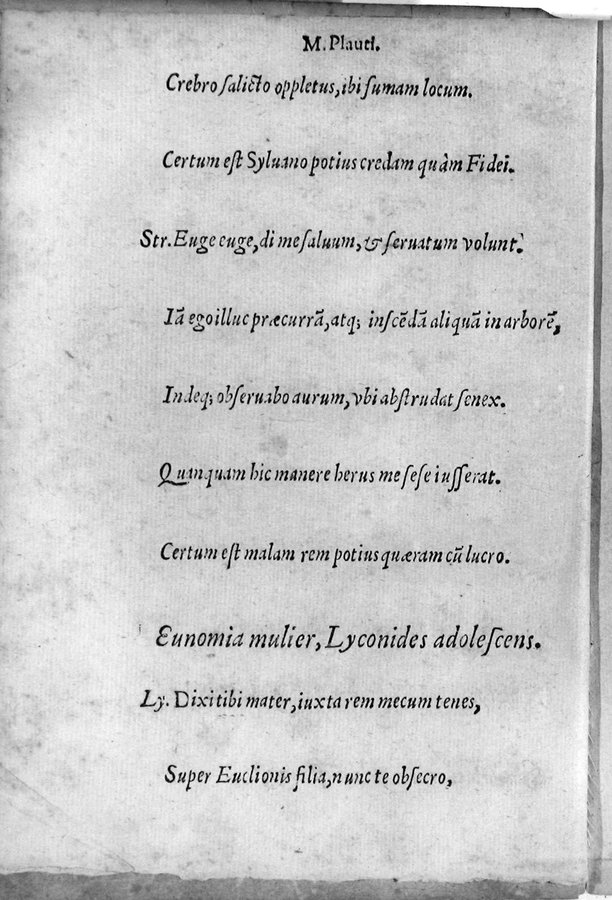 M. Plauti.
Crebro ſalicto oppletus, ibi ſumam locum.
Certum eſt Syluano potius credam quàm Fidei.
Str. Euge euge, di me ſaluum, & ſeruatum volunt.
Iã ego illuc præcurrã, atq; inſcẽdã aliquã in arborẽ,
Indeq; obſeruabo aurum, vbi abſtrudat ſenex.
Quanquam hic manere herus me ſeſe iuſſerat.
Certum eſt malam rem potius quæram cũ lucro.
Eunomia mulier, Lyconides adoleſcens.
Ly. Dixi tibi mater, iuxta rem mecum tenes,
Super Euclionis filia, nunc te obſecro,